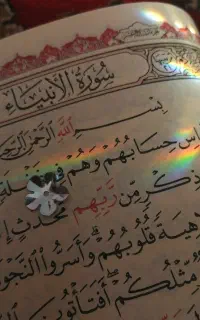 سُورَةُ الْأَنْبِيَاءِ
بِسْمِ اللَّهِ الرَّحْمَٰنِ الرَّحِيمِ
حِسَابُهُمْ وَهُمْ فِي
ذِكْرٍ مِنْ رَبِّهِمْ مُحْدَثٍ
قُلُوبُهُمْ وَأَسَرُّوا النَّجْوَى
مِثْلُكُمْ أَفَتَأْتُونَ